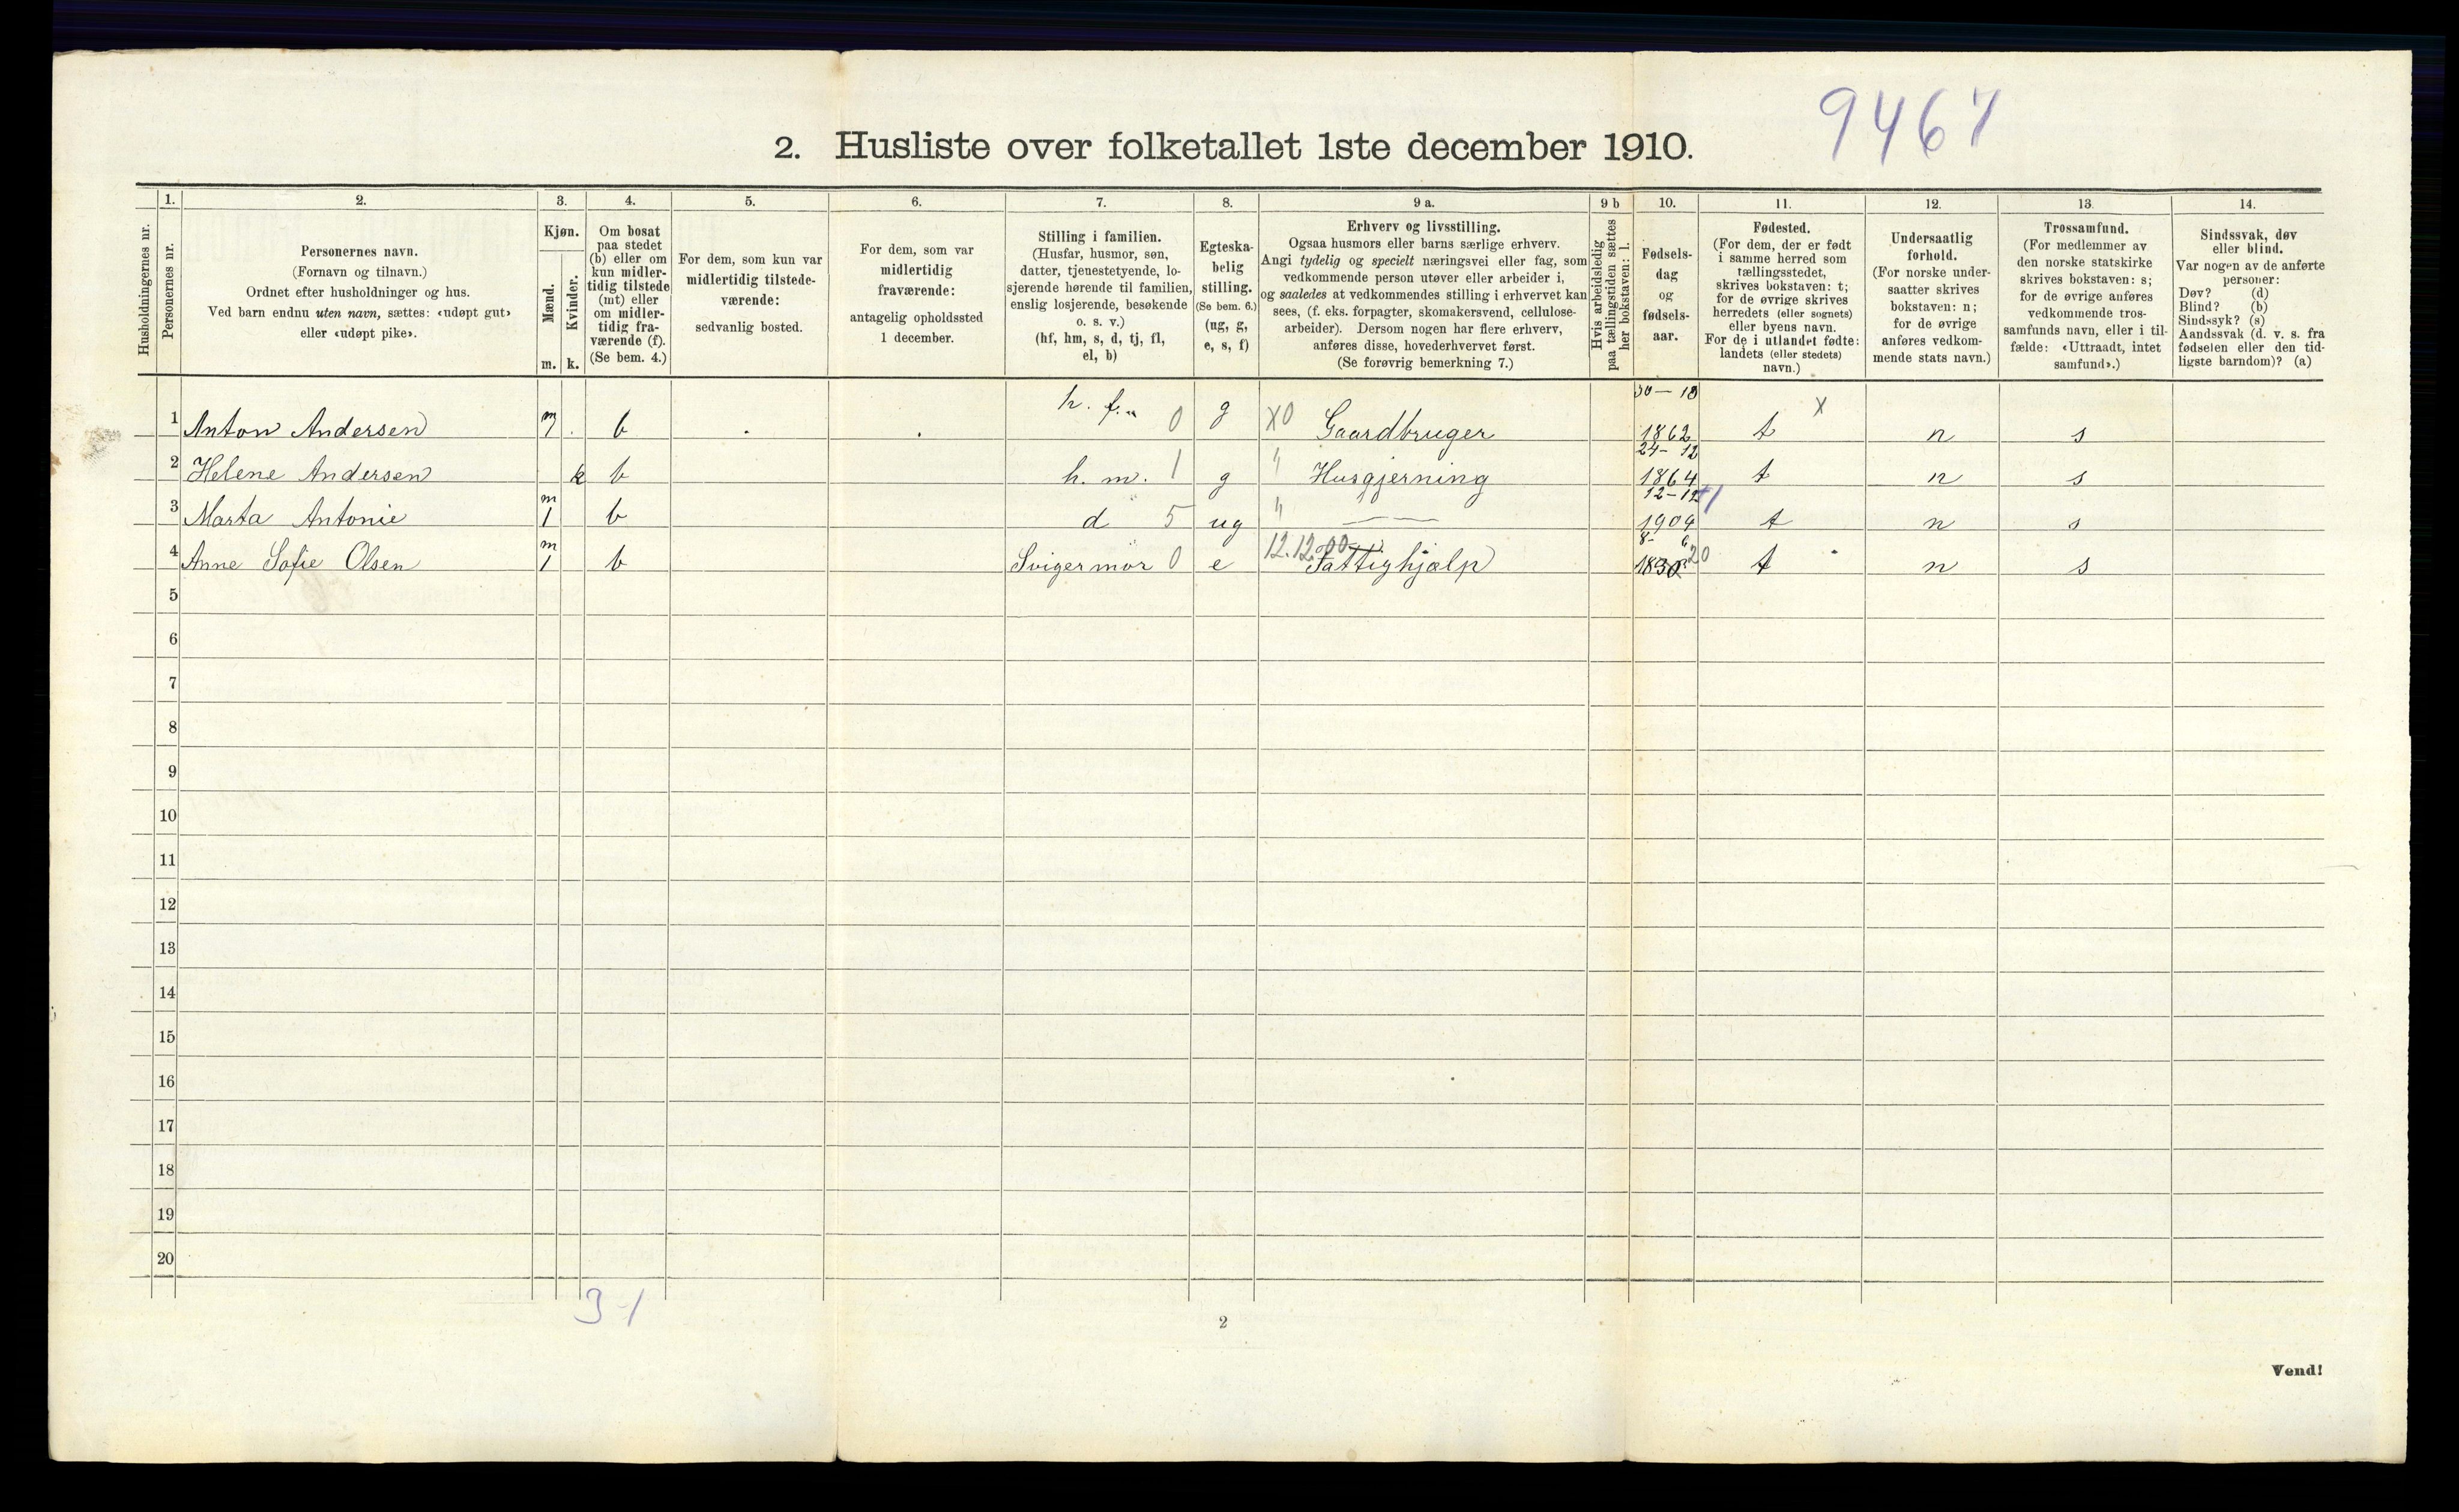 9467
2. Husliste over folketallet 1ste december 1910.
Husholdningernes nr.
1.
Personernes nr.
2.
Personernes navn.
(Fornavn og tilnavn.)
Ordnet efter husholdninger og hus.
Ved barn endnu uten navn, sættes: «udøpt gut»
eller «udøpt pike».
3.
Kjøn.
Mænd.
Kvinder.
m. k.
4.
Om bosat
paa stedet
(b) eller om
kun midler-
tidig tilstede
(mt) eller
om midler-
tidig fra-
værende (f).
(Se bem. 4.)
5.
For dem, som kun var
midlertidig tilstede-
værende:
sedvanlig bosted.
6.
For dem, som var
midlertidig
fraværende:
antagelig opholdssted
1 december.
7.
Stilling i familien.
(Husfar, husmor, søn,
datter, tjenestetyende, lo-
sjerende hørende til familien,
enslig losjerende, besøkende
o. s. v.)
(hf, hm, s, d, tj, fl,
el, b)
8.
Egteska-
belig
stilling.
(Se bem. 6.)
(ug, g,
e, s, f)
9 a.
Erhverv og livsstilling.
Ogsaa husmors eller barns særlige erhverv.
Angi tydelig og specielt næringsvei eller fag, som
vedkommende person utøver eller arbeider i,
og saaledes at vedkommendes stilling i erhvervet kan
sees, (f. eks. forpagter, skomakersvend, cellulose-
arbeider). Dersom nogen har flere erhverv,
anføres disse, hovederhvervet først.
(Se forøvrig bemerkning 7.)
9 b
Hvis arbeidsledig
paa tællingstiden sættes
her bokstaven: l.
10.
Fødsels-
dag
og
fødsels-
aar.
11.
Fødested.
(For dem, der er født
i samme herred som
tællingsstedet,
skrives bokstaven: t;
for de øvrige skrives
herredets (eller sognets)
eller byens navn.
For de i utlandet fødte:
landets (eller stedets)
navn.)
12.
Undersaatlig
forhold.
(For norske under-
saatter skrives
bokstaven: n;
for de øvrige
anføres vedkom-
mende stats navn.)
13.
Trossamfund.
(For medlemmer av
den norske statskirke
skrives bokstaven: s;
for de øvrige anføres
vedkommende tros-
samfunds navn, eller i til-
fælde: «Uttraadt, intet
samfund».)
14.
Sindssvak, døv
eller blind.
Var nogen av de anførte
personer:
Døv? (d)
Blind? (b)
Sindssyk? (s)
Aandssvak (d. v. s. fra
fødselen eller den tid-
ligste barndom)? (a)
1 Anton Andersen m 1 b h. f. 0 g X0 Gaardbruger 1862 t x n s
2 Helene Andersen k b h. m. 1 g " Husgjerning 24-12 1864 t n s
3 Marta Antonie m 1 b d 5 ug " 12-12 1904 t n s
4 Anne Sofie Olsen m 1 b Svigermor 0 e 12.12.00 Fattighjælp 8- 6 t n s
5
6
7
8
9
10
11
12
13
14
15
16
17
18
19
20
3-1
2
Vend!